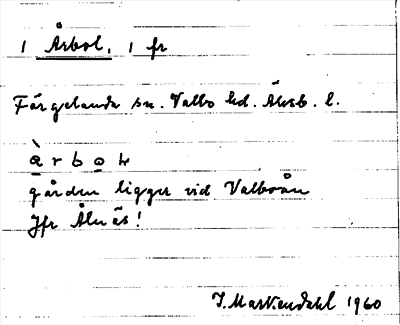 1 Årbol, 1 fr
Färgelanda sn. Valbo hd. Älvsb. l.
gården ligger vid Valboån
Jfr Ålnäs!
1960